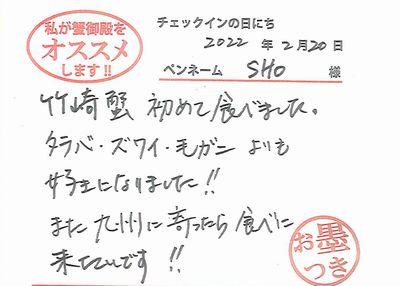 私が蟹御殿を
オススメ
します!!
チェックインの日にち
2022 年 2月20日
ペンネーム SHO 様
竹崎蟹 初めて食べました。
タラバ・ズワイ・毛ガニ よりも
好きになりました!!
また 九州に寄ったら食べに
来たいです !!
お墨
つき